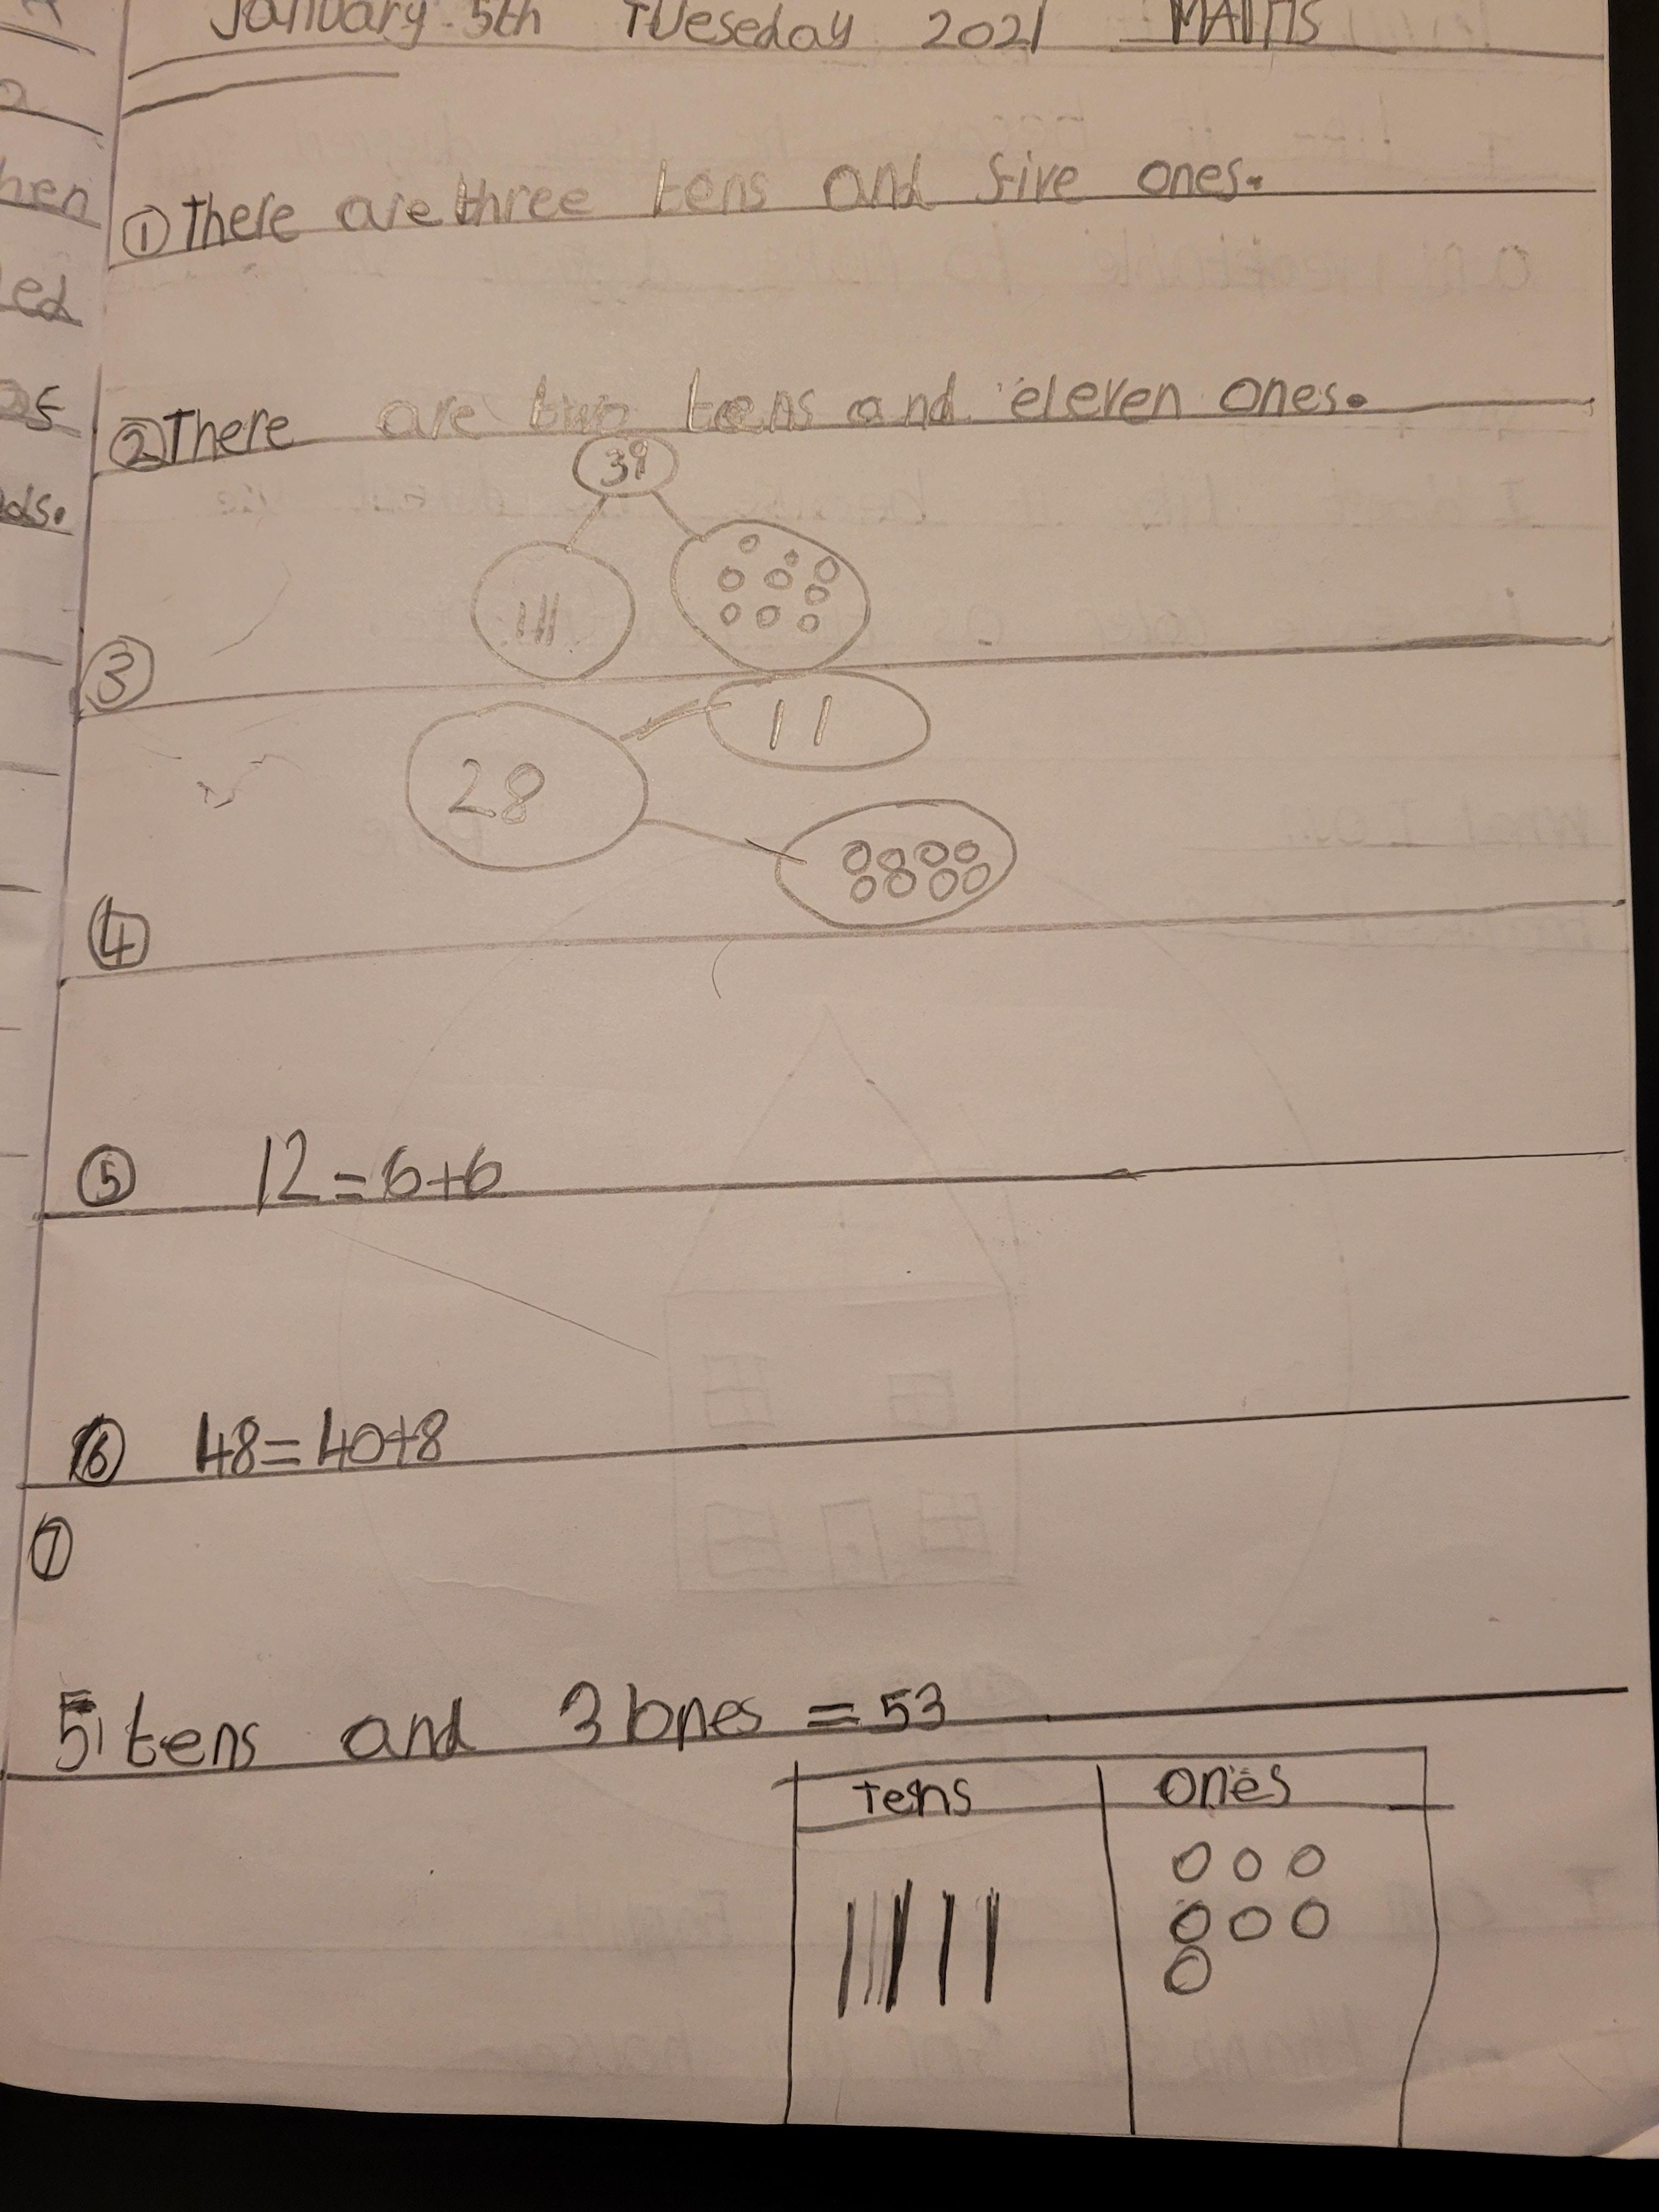 January 5th Tueseday 2021 MATHS
① There are three tens and five ones.
② There are two tens and eleven ones.
39
③
11
28
④
⑤ 12=6+6
⑥ 48=40+8
⑦
5 tens and 3 ones = 53
Tens ones